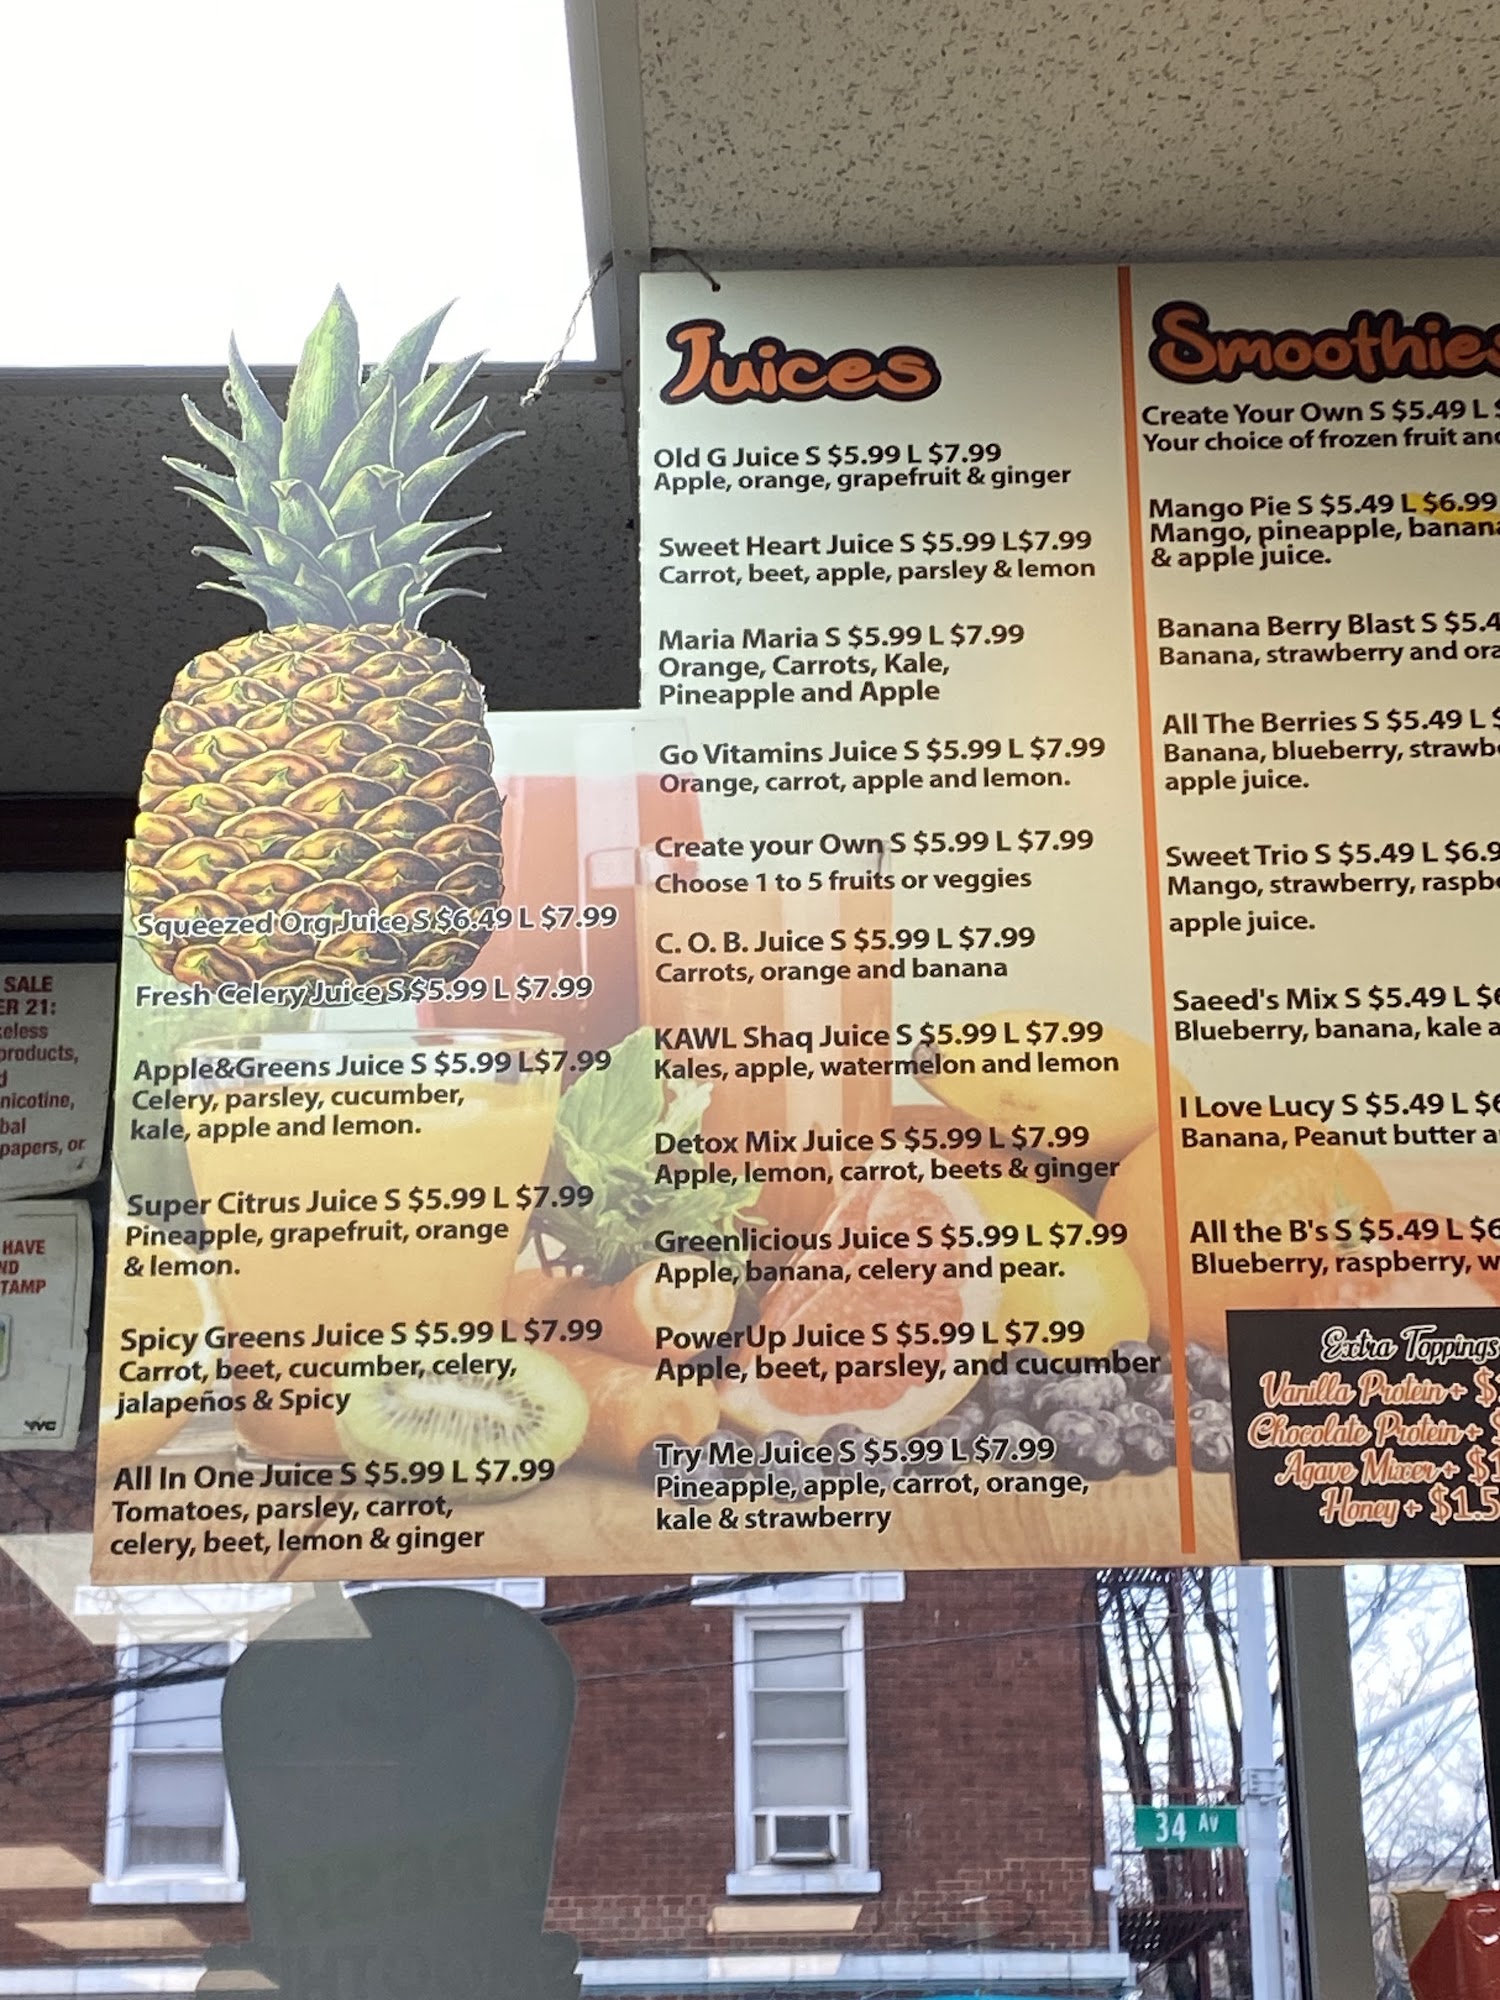 Juices
Old G Juice S $5.99 L $7.99
Apple, orange, grapefruit & ginger
Sweet Heart Juice S $5.99 L$7.99
Carrot, beet, apple, parsley & lemon
Maria Maria S $5.99 L $7.99
Orange, Carrots, Kale,
Pineapple and Apple
Go Vitamins Juice S $5.99 L $7.99
Orange, carrot, apple and lemon.
Create your Own S $5.99 L $7.99
Choose 1 to 5 fruits or veggies
C. O. B. Juice S $5.99 L $7.99
Carrots, orange and banana
KAWL Shaq Juice S $5.99 L $7.99
Kales, apple, watermelon and lemon
Detox Mix Juice S $5.99 L $7.99
Apple, lemon, carrot, beets & ginger
Greenlicious Juice S $5.99 L $7.99
Apple, banana, celery and pear.
PowerUp Juice S $5.99 L $7.99
Apple, beet, parsley, and cucumber
Try Me Juice S $5.99 L $7.99
Pineapple, apple, carrot, orange,
kale & strawberry
Squeezed Org Juice S $6.49 L $7.99
Fresh Celery Juice S $5.99 L $7.99
Apple&Greens Juice S $5.99 L$7.99
Celery, parsley, cucumber,
kale, apple and lemon.
Super Citrus Juice S $5.99 L $7.99
Pineapple, grapefruit, orange
& lemon.
Spicy Greens Juice S $5.99 L $7.99
Carrot, beet, cucumber, celery,
jalapeños & Spicy
All In One Juice S $5.99 L $7.99
Tomatoes, parsley, carrot,
celery, beet, lemon & ginger
Smoothies
Create Your Own S $5.49 L
Your choice of frozen fruit
Mango Pie S $5.49 L $6.99
Mango, pineapple,
& apple juice.
Banana Berry Blast S
Banana, strawberry and
All The Berries S $5.49 L
Banana, blueberry,
apple juice.
Sweet Trio S $5.49 L
Mango, strawberry,
apple juice.
Saeed's Mix S $5.49 L
Blueberry, banana, kale
I Love Lucy S $5.49 L
Banana, Peanut butter
All the B's S $5.49 L
Blueberry, raspberry,
Extra Toppings
Vanilla Protein +
Chocolate Protein +
Agave Mixer +
Honey +
SALE
21:
products,
nicotine,
papers, or
HAVE
NYC
34 AV